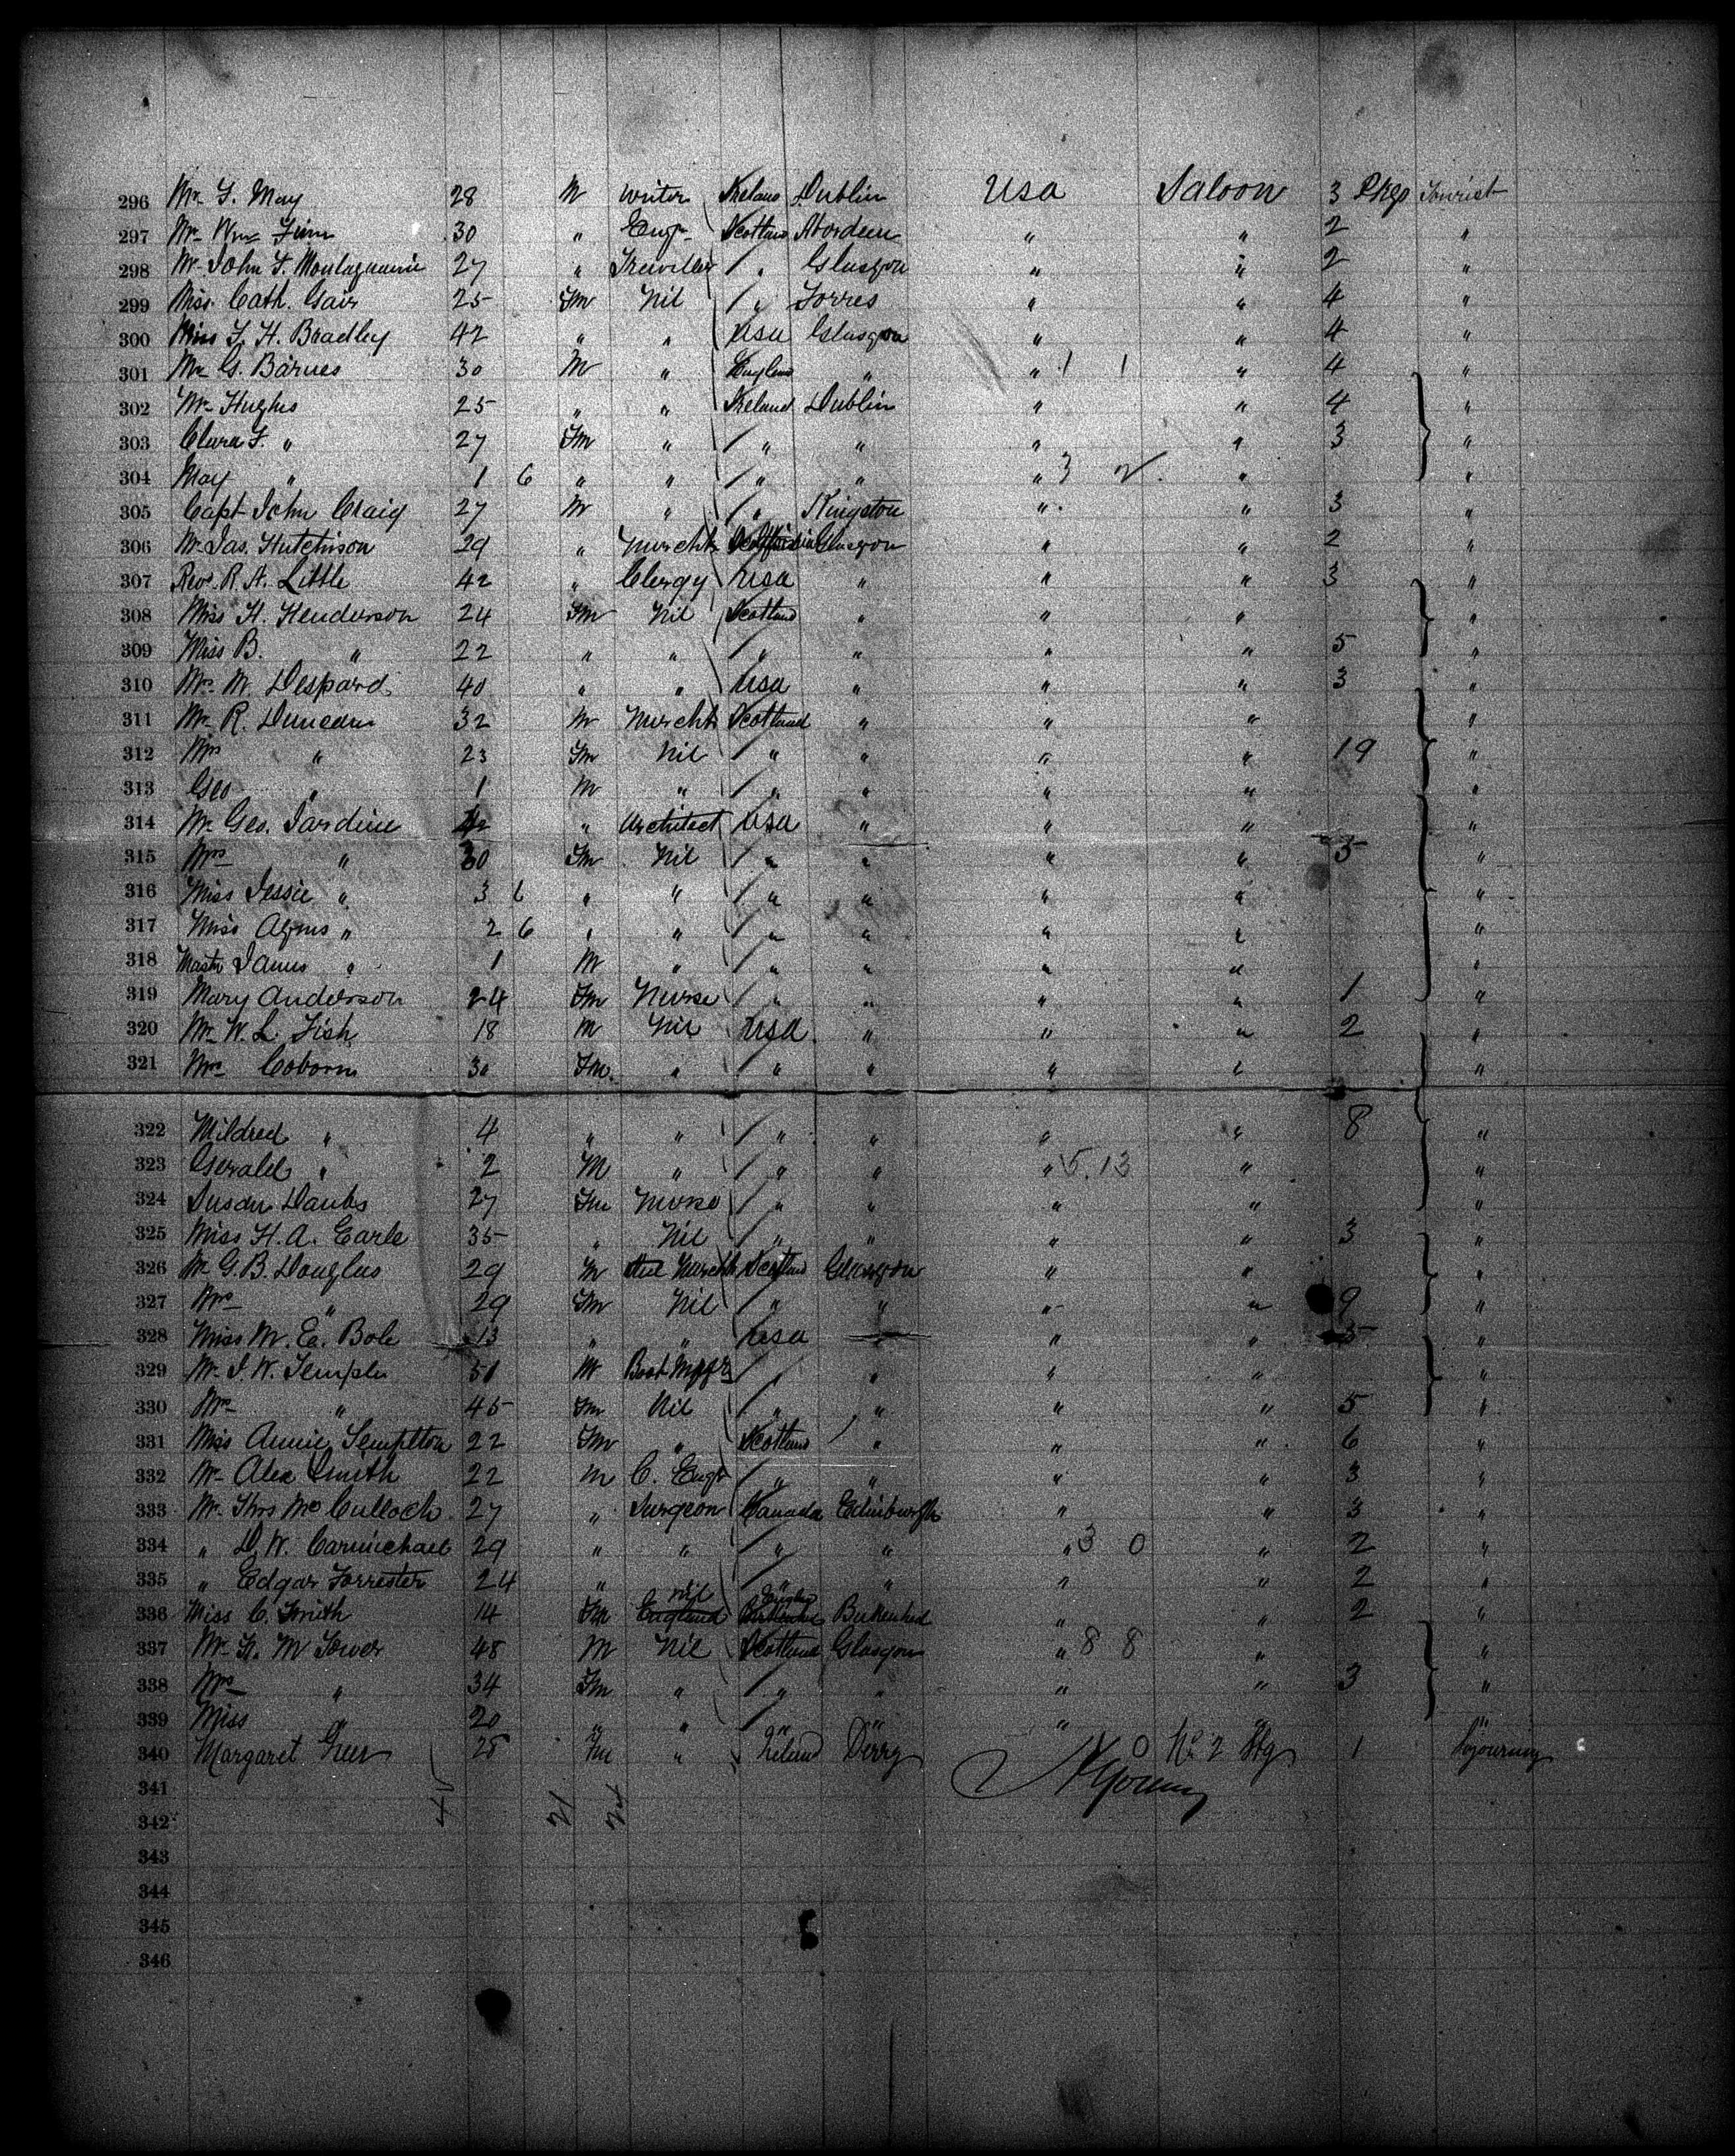 296 Mr F. May 28 M Writer Ireland Dublin USA Saloon 3 Pkgs Tourist
297 Mr Wm Finn 30 " Engr Scotland Aberdeen " " 2 "
298 Mr John F. 27 " " Glasgow " " 2 "
299 Miss Cath. Gair 25 Fm Nil " Forres " " 4 "
300 Miss F. H. Bradley 42 " " USA Glasgow " " 4 "
301 Mr G. Barnes 30 M " England " " 1 1 " 4 "
302 Mr Hughes 25 " " Ireland Dublin " " 4 "
303 Clara F. " 27 Fm " " " " " 3 "
304 May " 1 6 " " " " " 3 2 " "
305 Capt John Craig 27 M " " Kingston " " 3 "
306 Mr Jas. Hutchison 29 " Murcht Glasgow " " 2 "
307 Revd. R. A. Little 42 " Clergy USA " " " 3 "
308 Miss H. Henderson 24 Fm Nil Scotland " " " "
309 Miss B. " 22 " " " " " " 5 "
310 Mrs M. Despard 40 " " USA " " " 3 "
311 Mr R. Duncan 32 M Murcht Scotland " " " "
312 Mrs " 23 Fm Nil " " " " 19 "
313 Geo " 1 M " " " " " "
314 Mr Geo. Jardine 42 " Architect USA " " " "
315 Mrs " 30 Fm Nil " " " " 5 "
316 Miss Jessie " 3 6 " " " " " " "
317 Miss Agnes " 2 6 " " " " " " "
318 Mastr James " 1 M " " " " " "
319 Mary Anderson 24 Fm Nurse " " " " 1 "
320 Mr W. L. Fish 18 M Nil USA " " " 2 "
321 Mrs Coborn 30 Fm " " " " " "
322 Mildred " 4 " " " " " " 8 "
323 Gerald " 2 M " " " " 5 13 " "
324 Susan 27 Fm Nurse " " " " "
325 Miss H. A. Earle 35 " Nil " " " " 3 "
326 Mr G. B. Douglas 29 M Murcht Scotland Glasgow " " "
327 Mrs " 29 Fm Nil " " " " 9 "
328 Miss M. Ea. Bole 13 " " USA " " " 5 "
329 Mr J. W. Temple 51 M Boot Mfgr " " " " "
330 Mrs " 45 Fm Nil " " " " 5 "
331 Miss Annie Templton 22 Fm " Scotland " " " 6 "
332 Mr Alex Smith 22 M C. Engr " " " " 3 "
333 Mr Thos McCulloch 27 " Surgeon Canada Edinburgh " " 3 "
334 " D. W. Carmichael 29 " " " " " 3 0 " 2 "
335 " Edgar Forrester 24 " " " " " 2 "
336 Miss C. Smith 14 Fm England nil Birkenhd " " 2 "
337 Mr H. M Tower 48 M Nil Scotland Glasgow " 8 8 " "
338 Mrs " 34 Fm " " " " " 3 "
339 Miss " 20 " " " " " " "
340 Margaret Greer 25 Fm " Ireland Derry 1 0 No 2 Stg 1 Sojourning
341
342
343
344
345
346